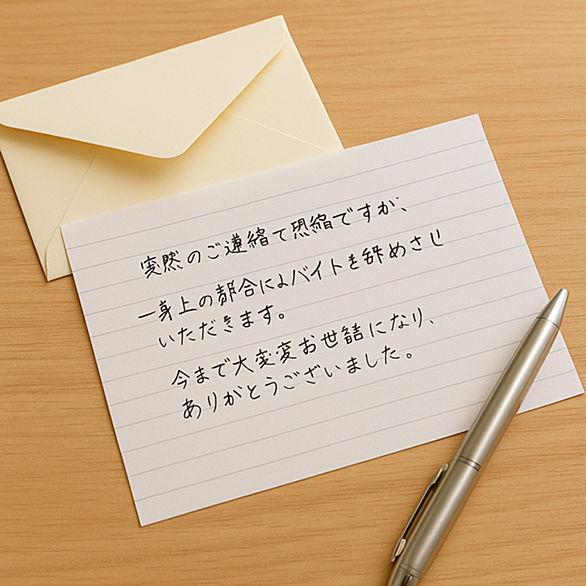 突然のご連絡で恐縮ですが、
一身上の都合によバイトを辞めさせ
いただきます。
今まで大変変お世話になり、
ありがとうございました。